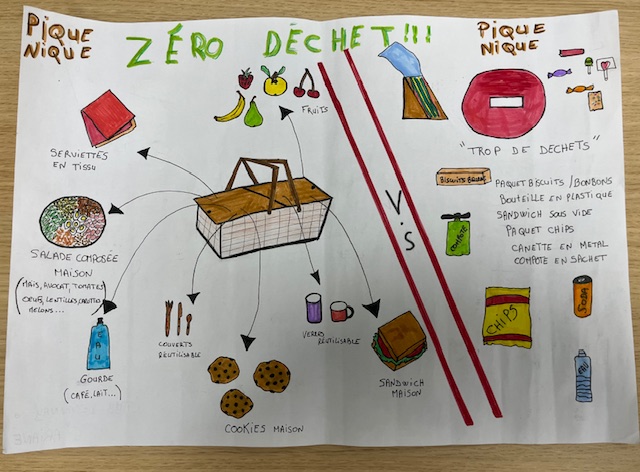 PIQUE
NIQUE
ZÉRO DÈCHET!!!
PIQUE
NIQUE
FRUITS
SERVIETTES
EN TISSU
SALADE COMPOSÉE
MAISON
(MAIS, AVOCAT, TOMATES
OEUFS, LENTILLES,
MELONS...
EAU
GOURDE
(CAFÉ, LAIT...)
COUVERTS
RÉUTILISABLE
COOKIES MAISON
VERRES
RÉUTILISABLE
SANDWICH
MAISON
V.S
"TROP DE DECHETS"
BISCUITS
PAQUET BISCUITS / BONBONS
BOUTEILLE EN PLASTIQUE
SANDWICH SOUS VIDE
PAQUET CHIPS
CANETTE EN METAL
COMPOTE EN SACHET
COMPOTE
CHIPS
SODA